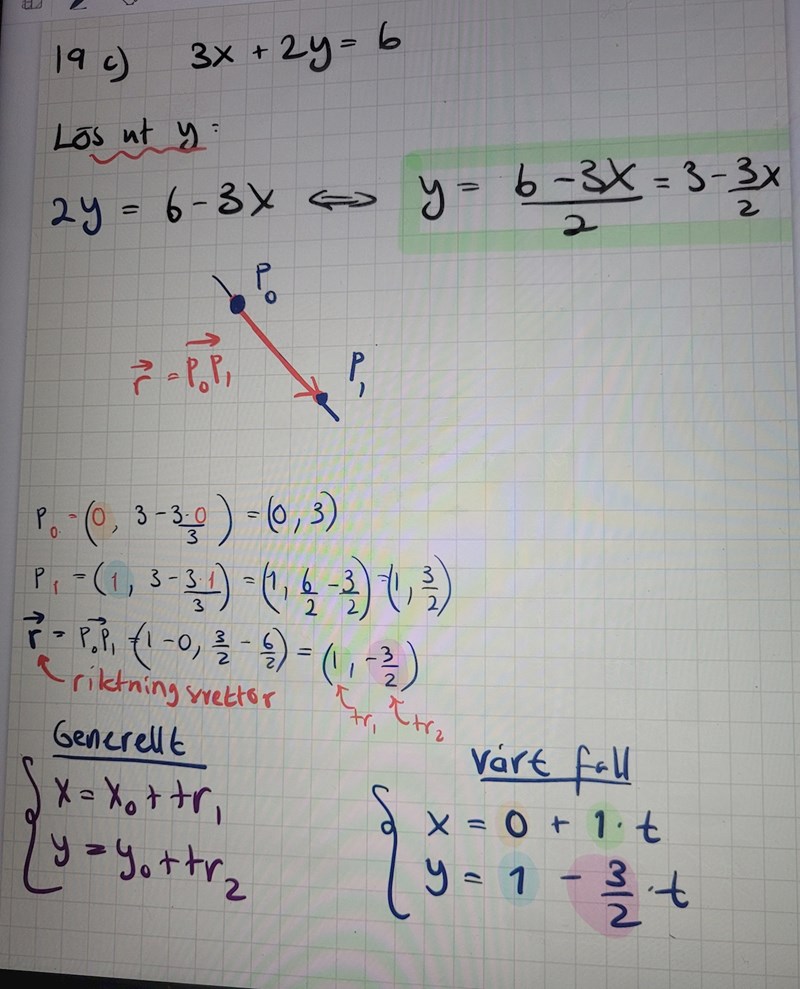 19 c) 3x + 2y = 6
Lös ut y:
2y = 6 - 3x ⟺ y = (6 - 3x)/2 = 3 - 3x/2
P₀
r⃗ = P₀P₁⃗
P₁
P₀ = (0, 3 - 3·0/3) = (0, 3)
P₁ = (1, 3 - 3·1/3) = (1, 6/2 - 3/2) = (1, 3/2)
r⃗ = P₀P₁⃗ = (1 - 0, 3/2 - 6/2) = (1, -3/2)
riktningsvektor tr₁ tr₂
Generellt
x = x₀ + tr₁
y = y₀ + tr₂
Vårt fall
x = 0 + 1·t
y = 1 - 3/2·t